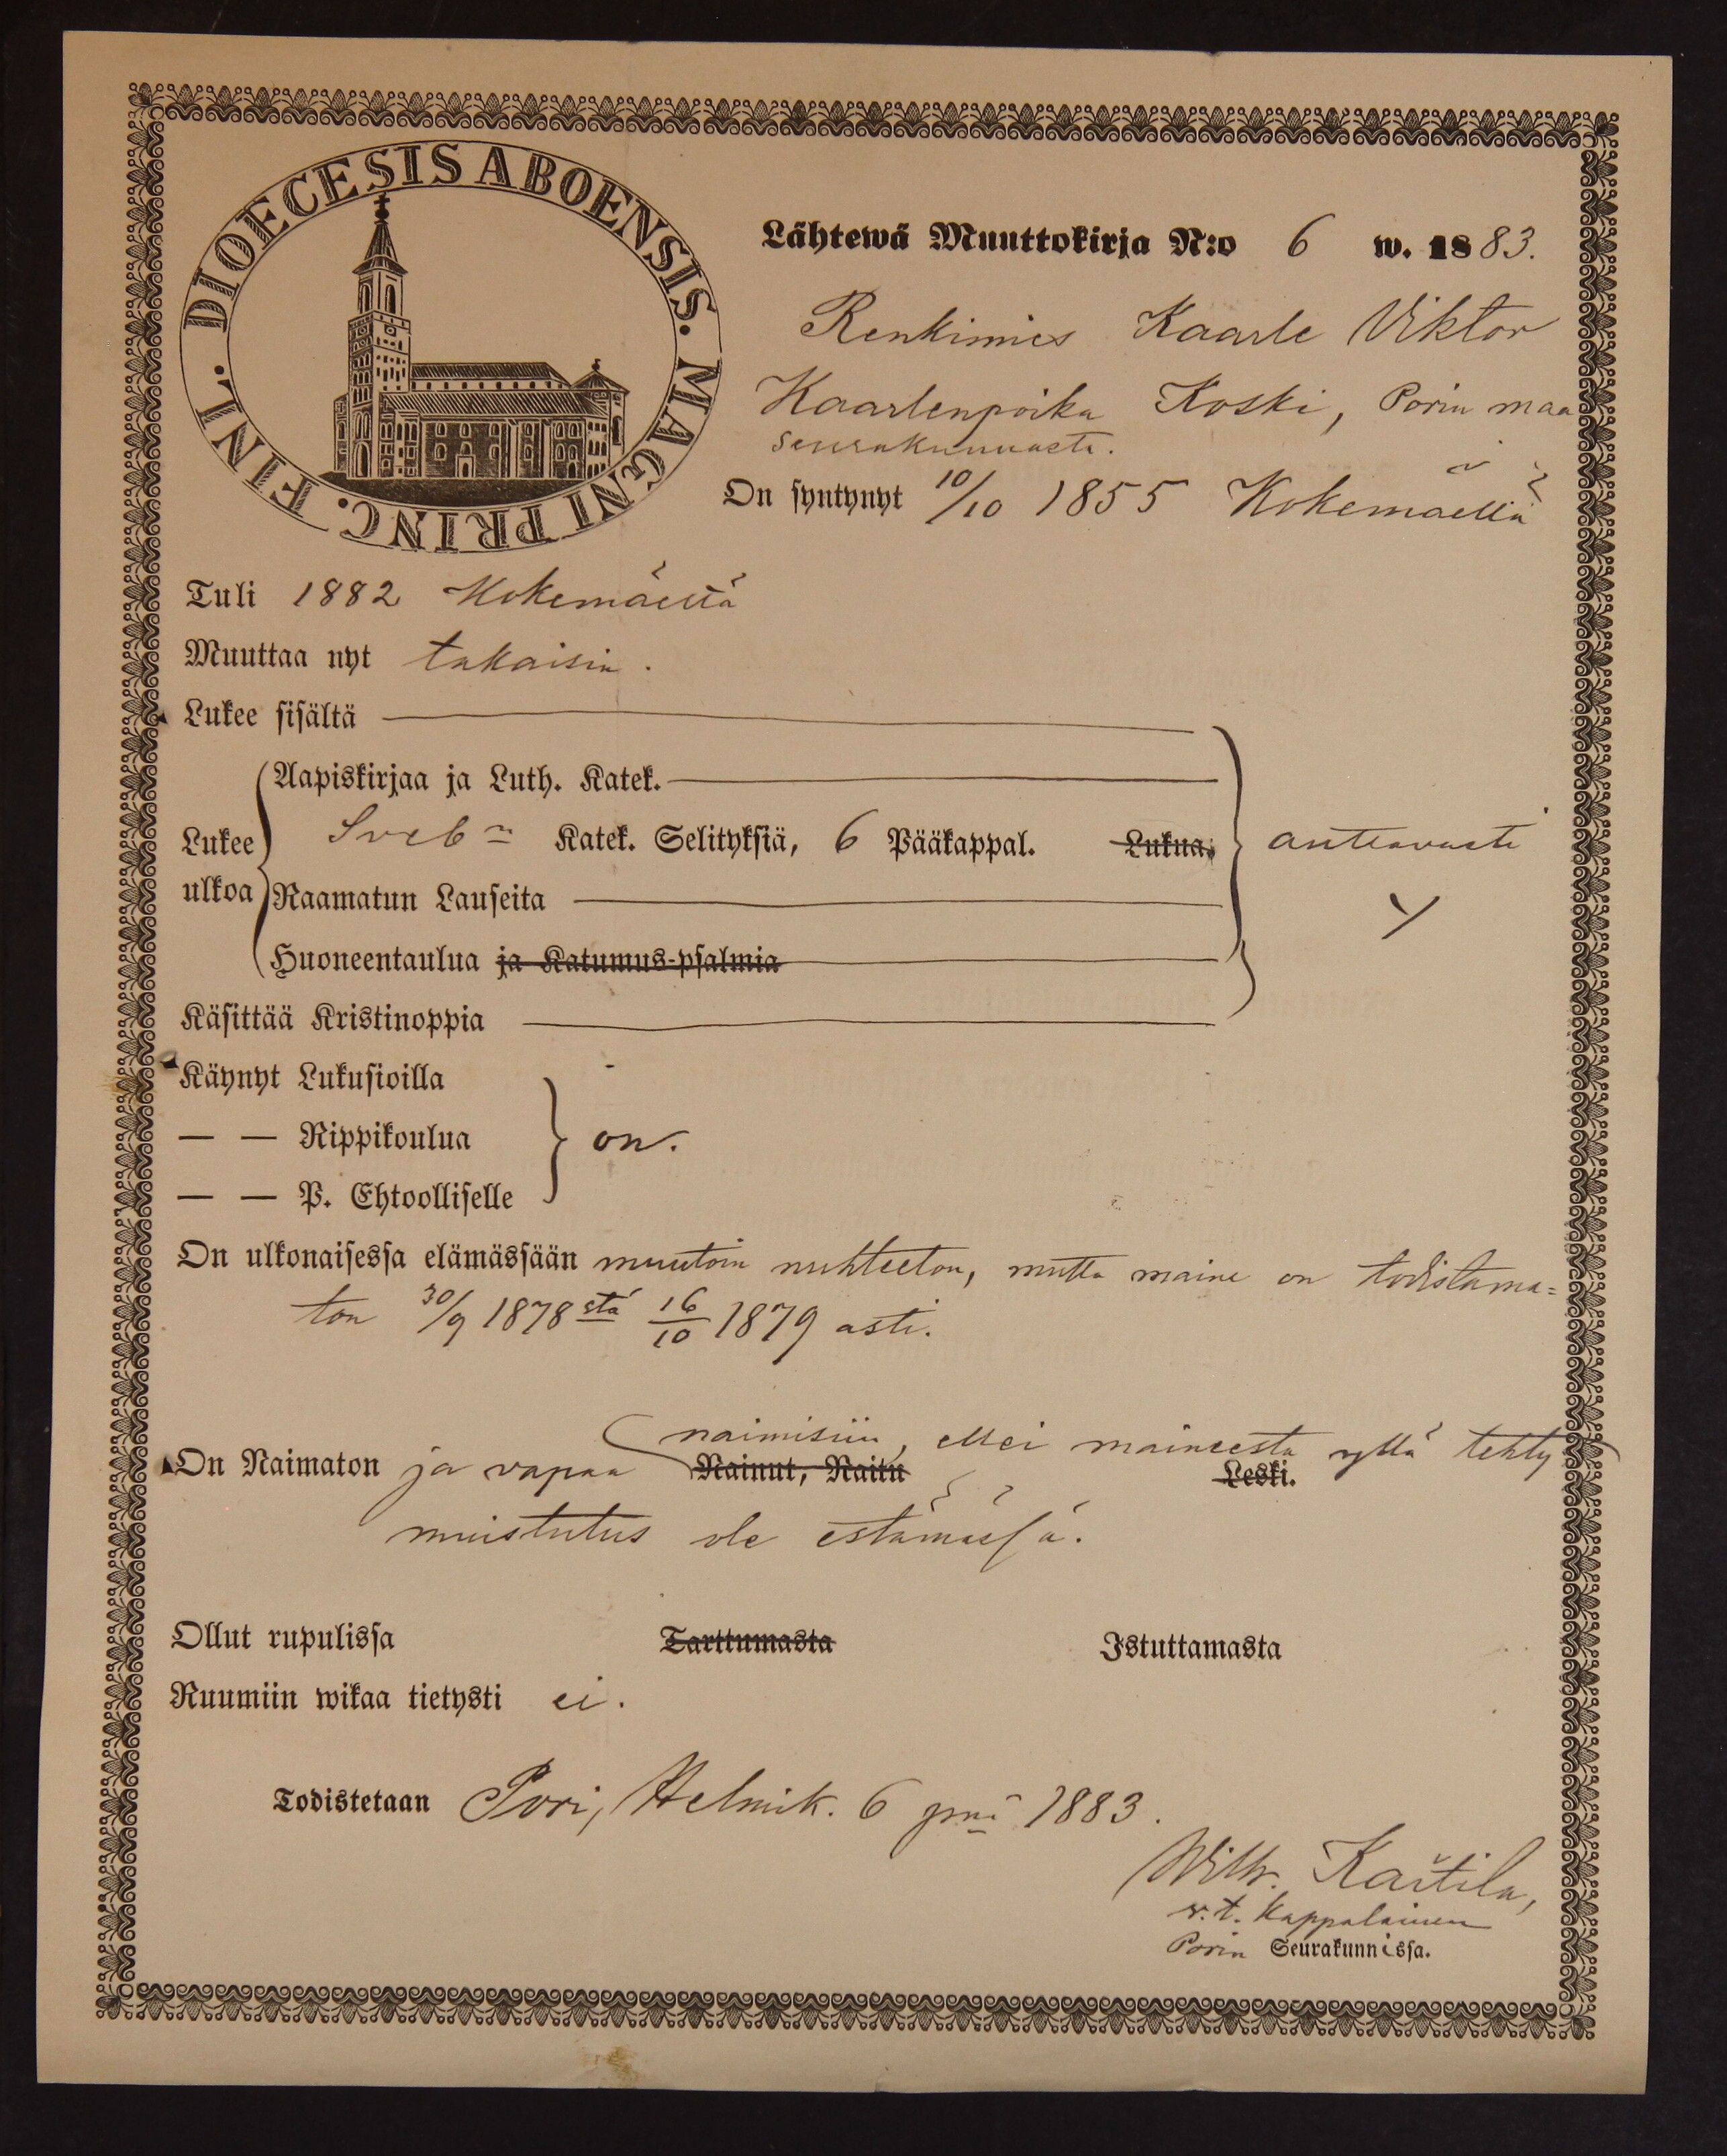 DIOECESIS ABOENSIS. MAGNI PRINC. FINL.
Lähtewä Muuttokirja N:o 6 w. 1883.
Renkimies Kaarle Viktor
Kaarlenpoika Koski, Porin maa
seurakunnasta.
On syntynyt 10/10 1855 Kokemäellä
Tuli 1882 Kokemäeltä
Muuttaa nyt takaisin.
Lukee sisältä
Aapiskirjaa ja Luth. Katek.
Lukee Sveb:n Katek. Selityksiä, 6 Pääkappal. Lukua, auttavasti
ulkoa Raamatun Lauseita
Huoneentaulua ja Katumus-psalmia
Käsittää Kristinoppia
Käynyt Lukusioilla
— — Rippikoulua on.
— — P. Ehtoolliselle
On ulkonaisessa elämässään muutoin nuhteeton, mutta maine on todistama=
ton 30/9 1878stä 16/10 1879 asti.
naimisiin, ellei maineesta yllä tehty
On Naimaton ja vapaa Nainut, Naitu Leski.
muistutus ole estämässä.
Ollut rupulissa Tarttumasta Istuttamasta
Ruumiin wikaa tietysti ei.
Todistetaan Pori, Helmik. 6 pnä 1883.
Wilh. Kastila,
v.t. Kappalainen
Porin Seurakunnissa.